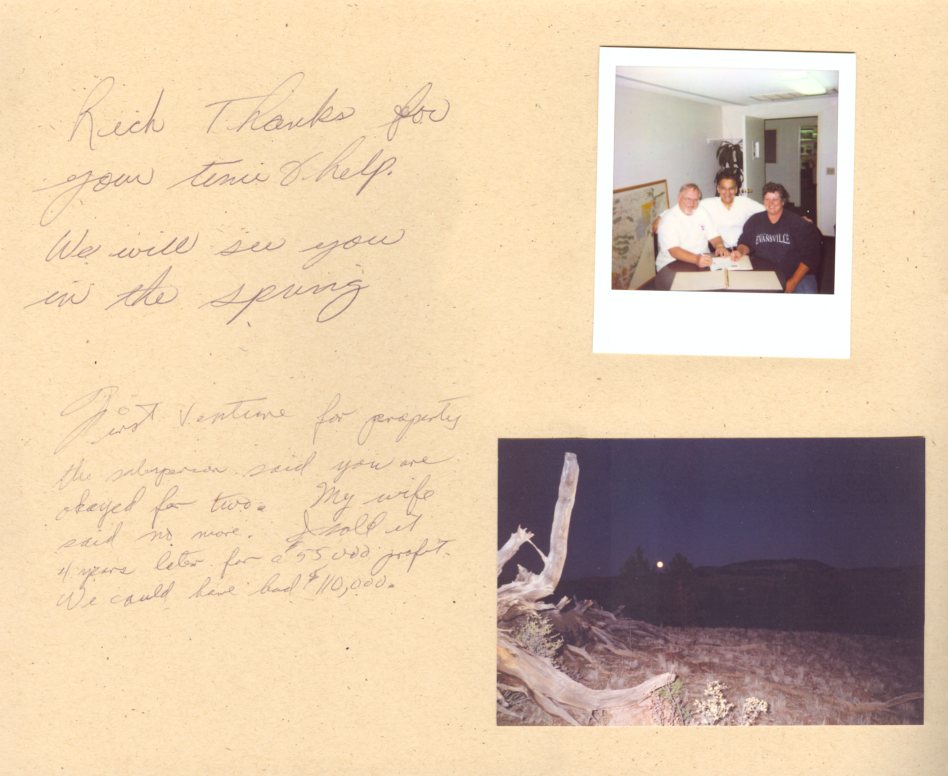 Rich Thanks for
your time & help.
We will see you
in the spring
First Venture for property
the salesperson said you are
okayed for two. My wife
said no more. I sold it
4 years later for a $55,000 profit.
We could have had $110,000.
EVANSVILLE